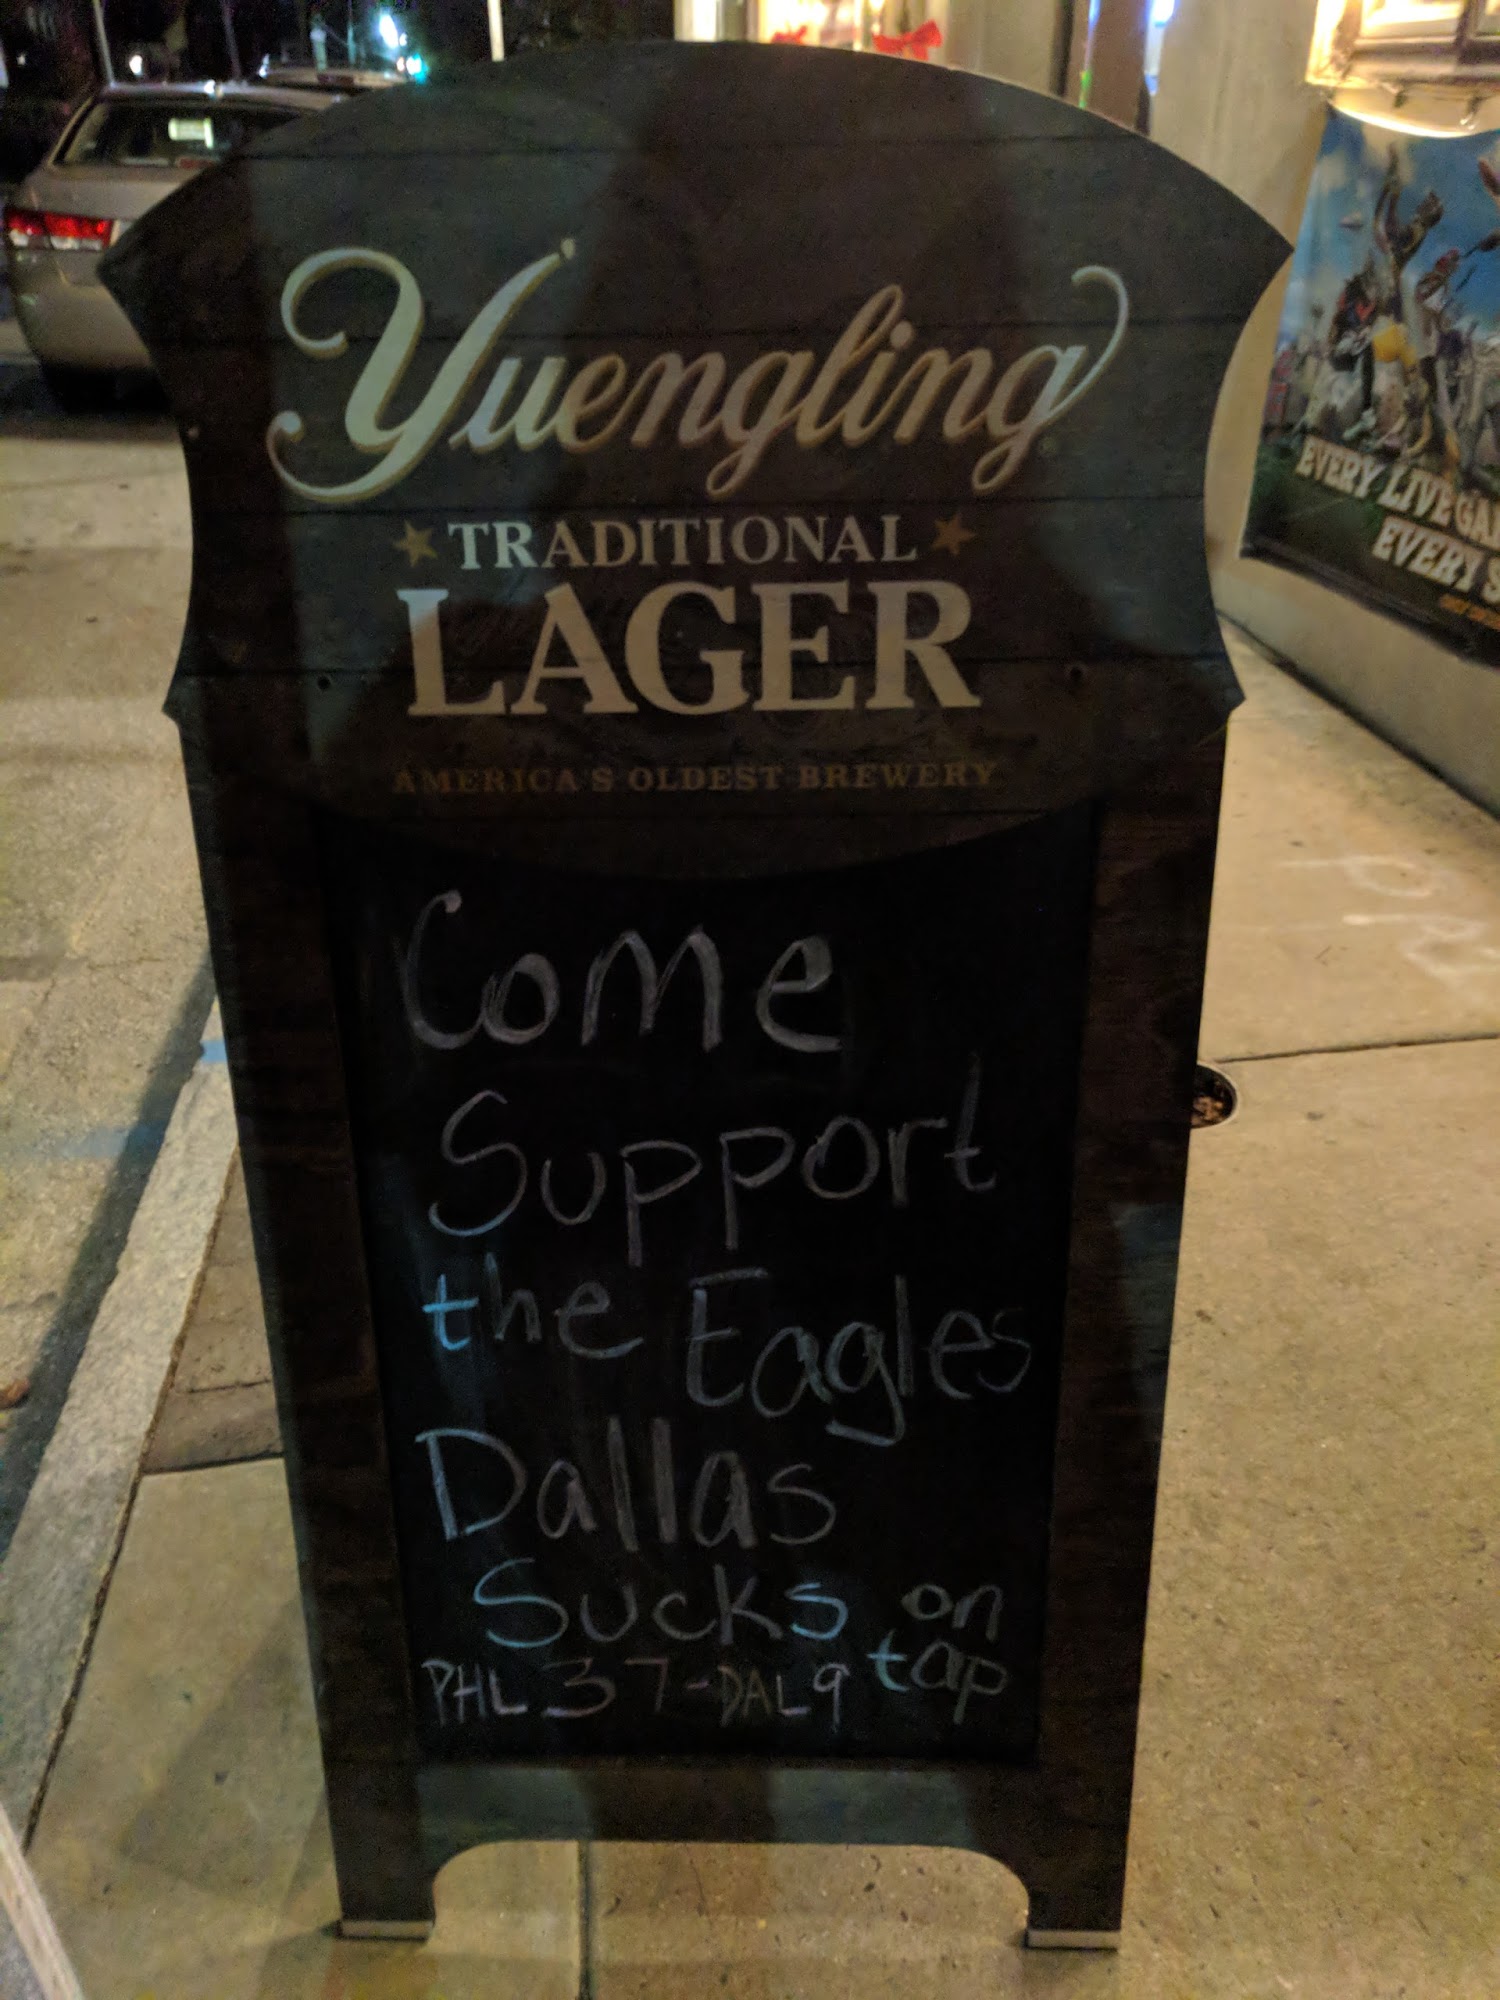 Yuengling
TRADITIONAL
LAGER
AMERICA'S OLDEST BREWERY
Come
Support
the Eagles
Dallas
Sucks on
tap
PHL 37-DAL 9
EVERY LIVE
EVERY